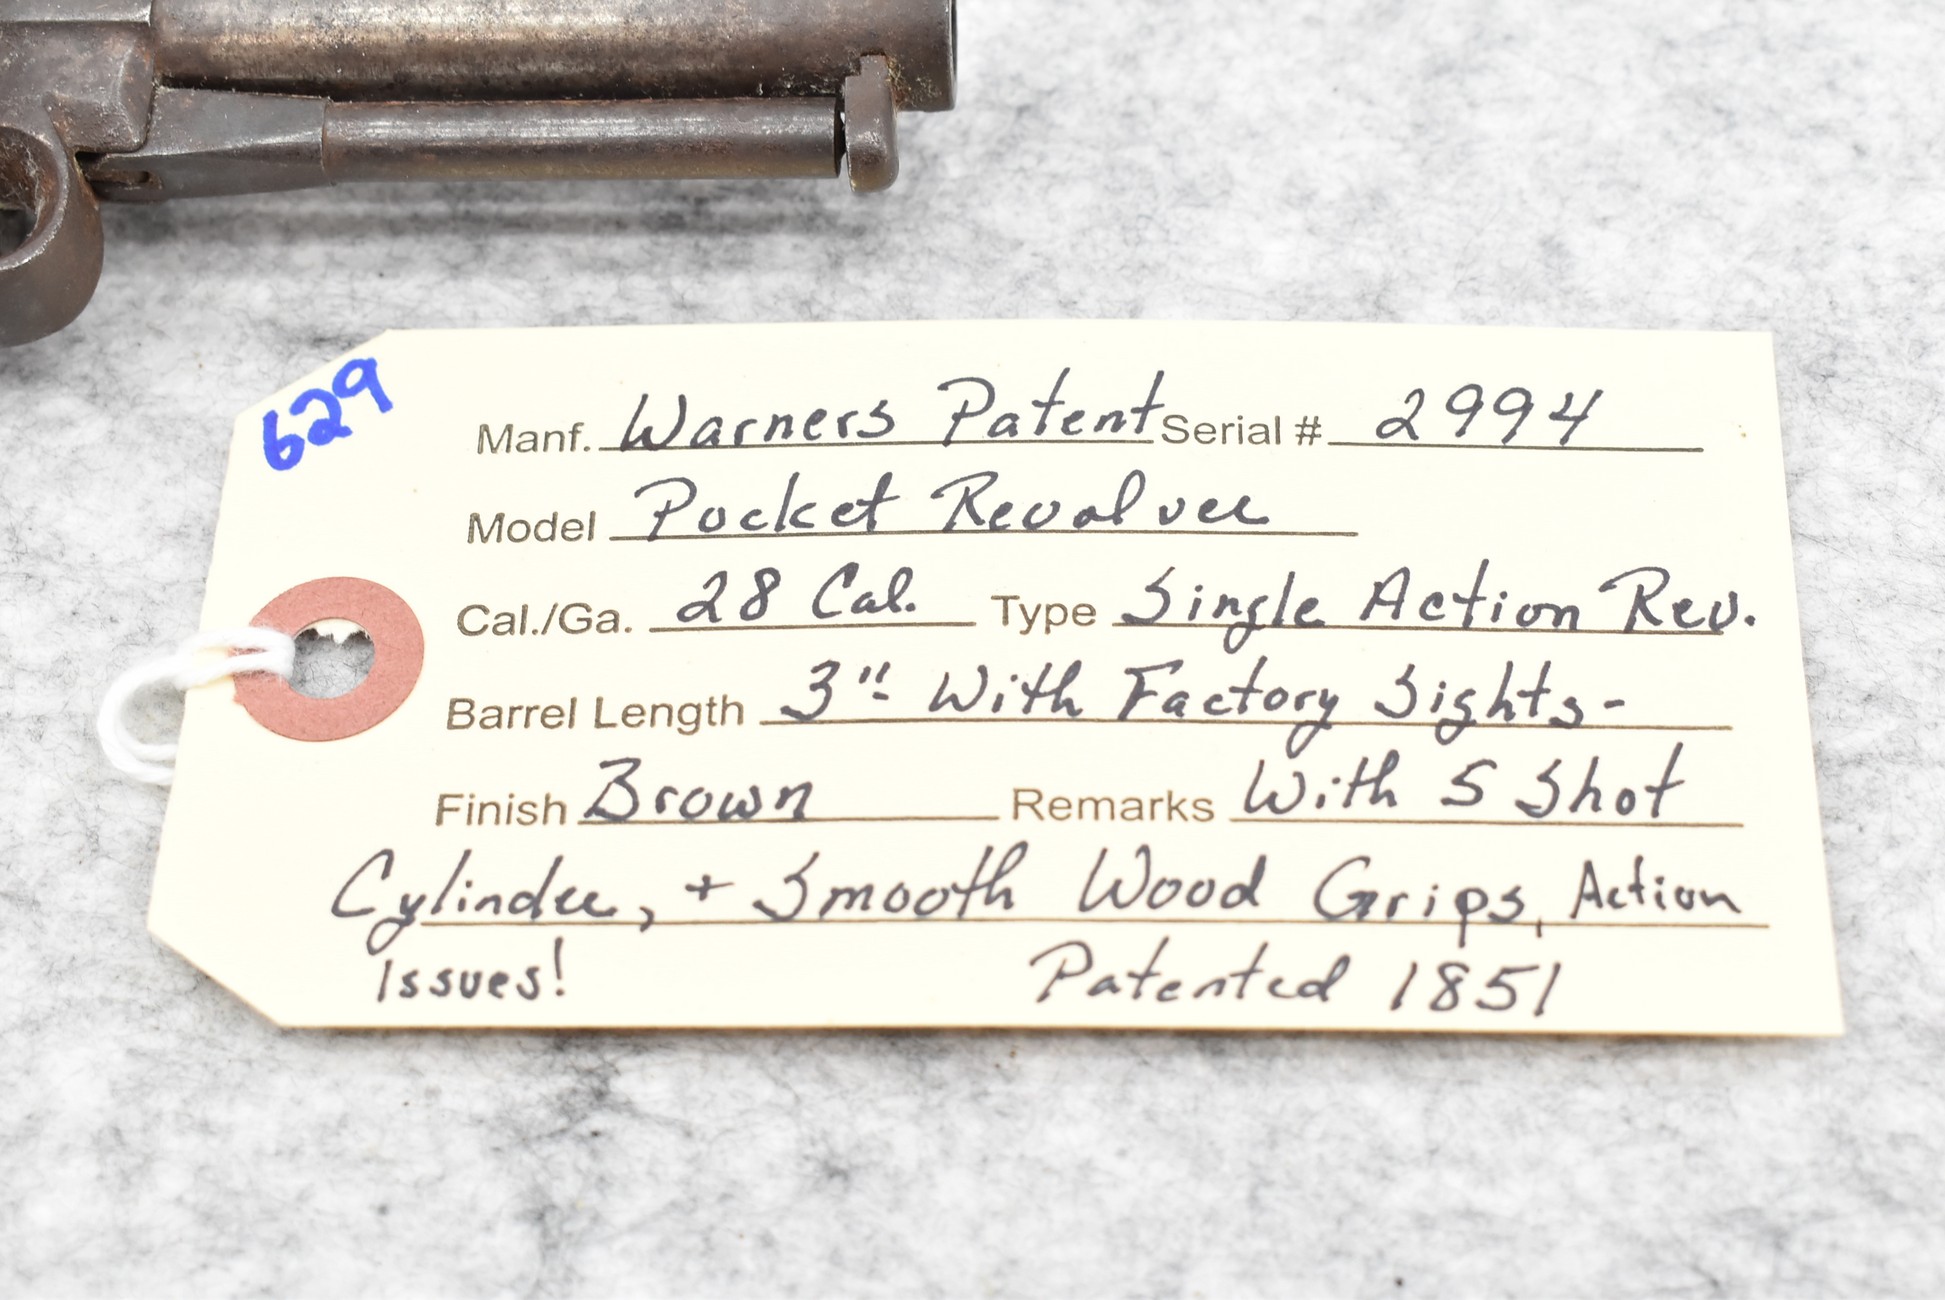 629
Manf. Warners Patent Serial # 2994
Model Pocket Revolver
Cal./Ga. 28 Cal. Type Single Action Rev.
Barrel Length 3" With Factory Sights-
Finish Brown Remarks With 5 Shot
Cylinder, + Smooth Wood Grips, Action
Issues! Patented 1851